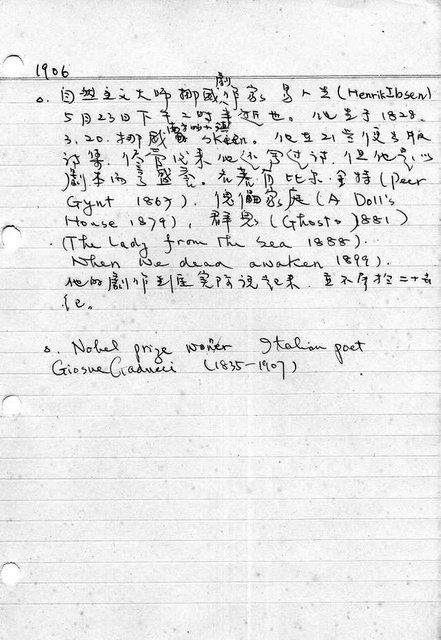 1906
。自然主义大师挪威劇作家易卜生(Henrik Ibsen)
5月23日下午2时半逝世。他生于1828.
3.20.挪威南方的小鎮Skeen。他在21岁便出版
詩集,
劇本而享盛誉。名著有比尔·金特(Peer
Gynt 1867), 傀儡家庭(A Doll's
House 1879), 群鬼(Ghosts 1881)
(The Lady from The Sea 1888).
When We dead awaken 1899).
他的劇作到底实际说起来,並不属於二十世
纪。
。. Nobel prize wonner Italian poet
Giosue Caducci (1835-1907)